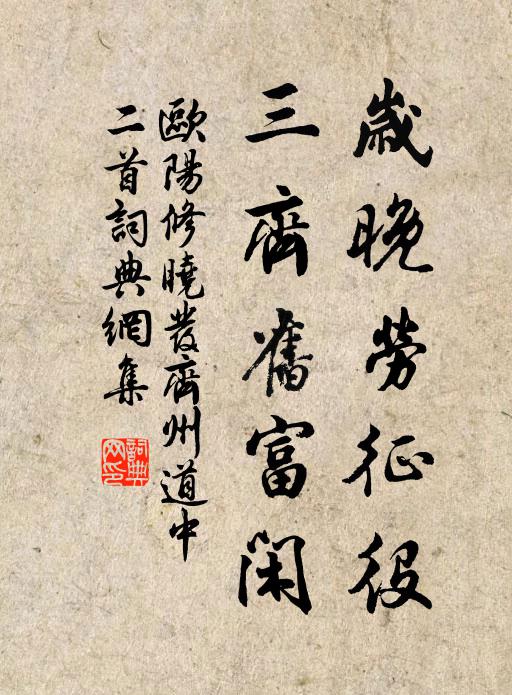 歲晚勞征役
三齊舊富閑
歐陽修曉發齊州道中
二首詞典網集
詞典
网印